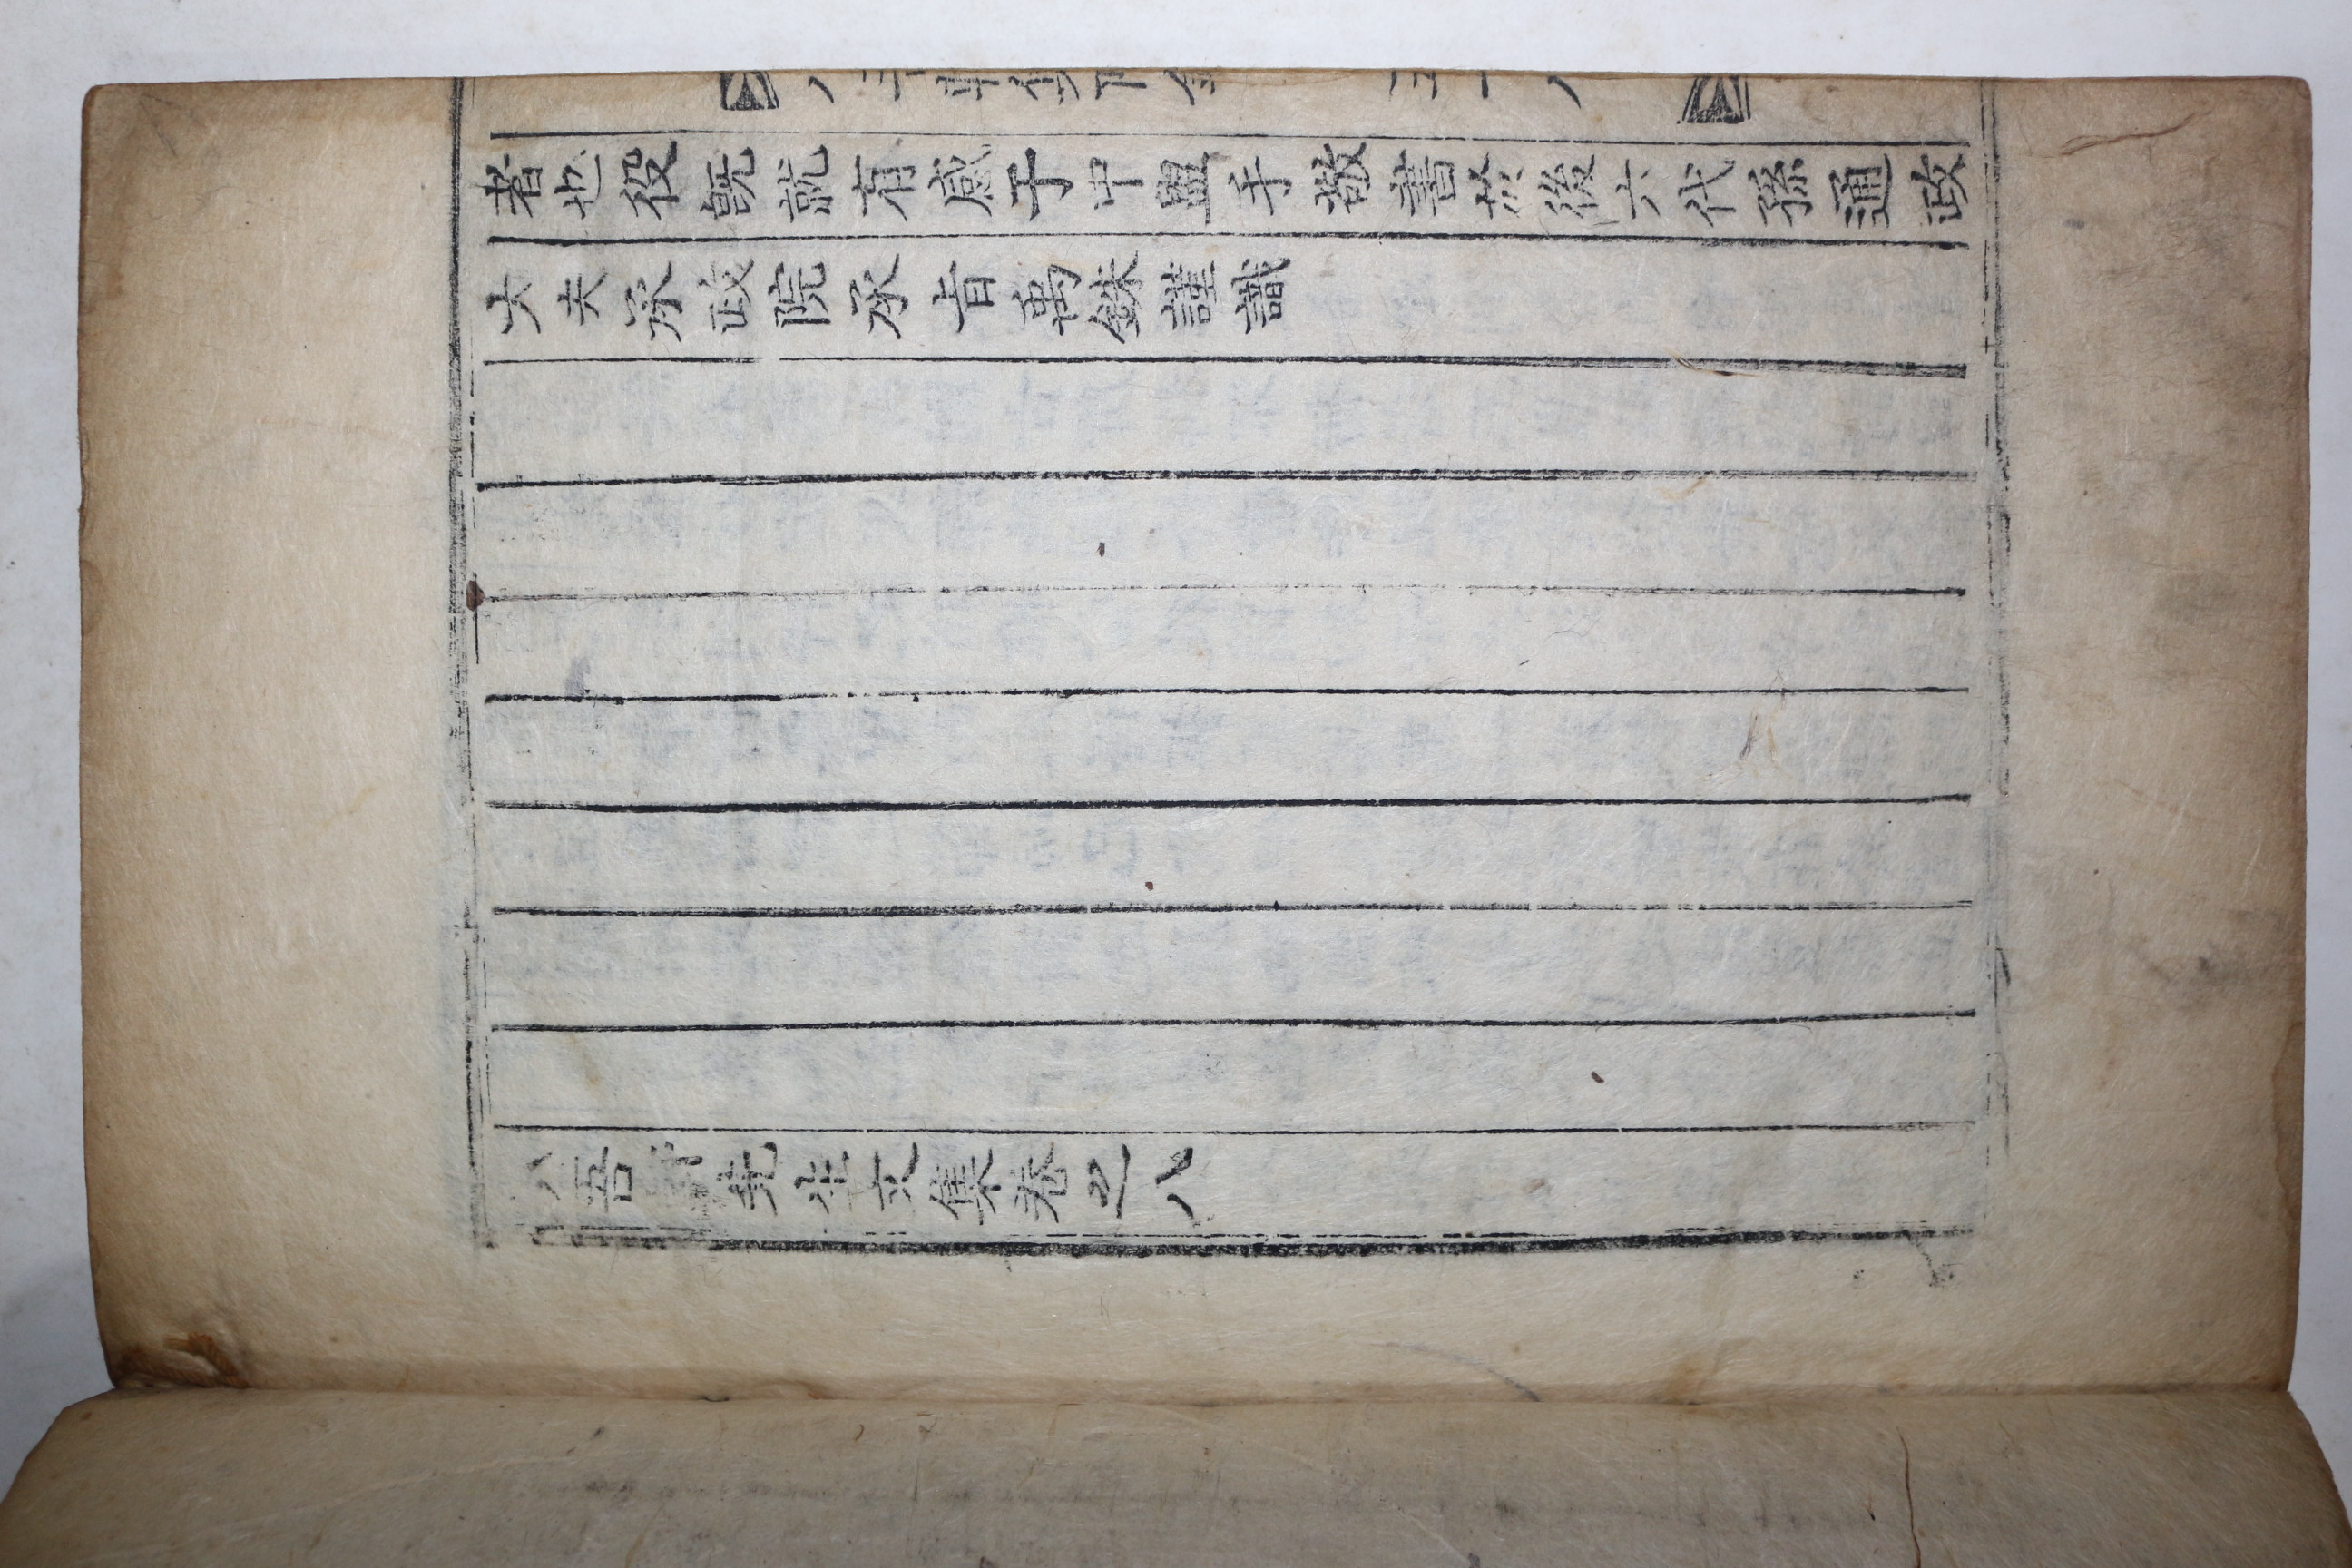 八吾軒集附錄
者也役旣就有感于中盥手敬書於後六代孫通政
大夫承政院承旨禹銖謹識
八吾軒先生文集卷之八